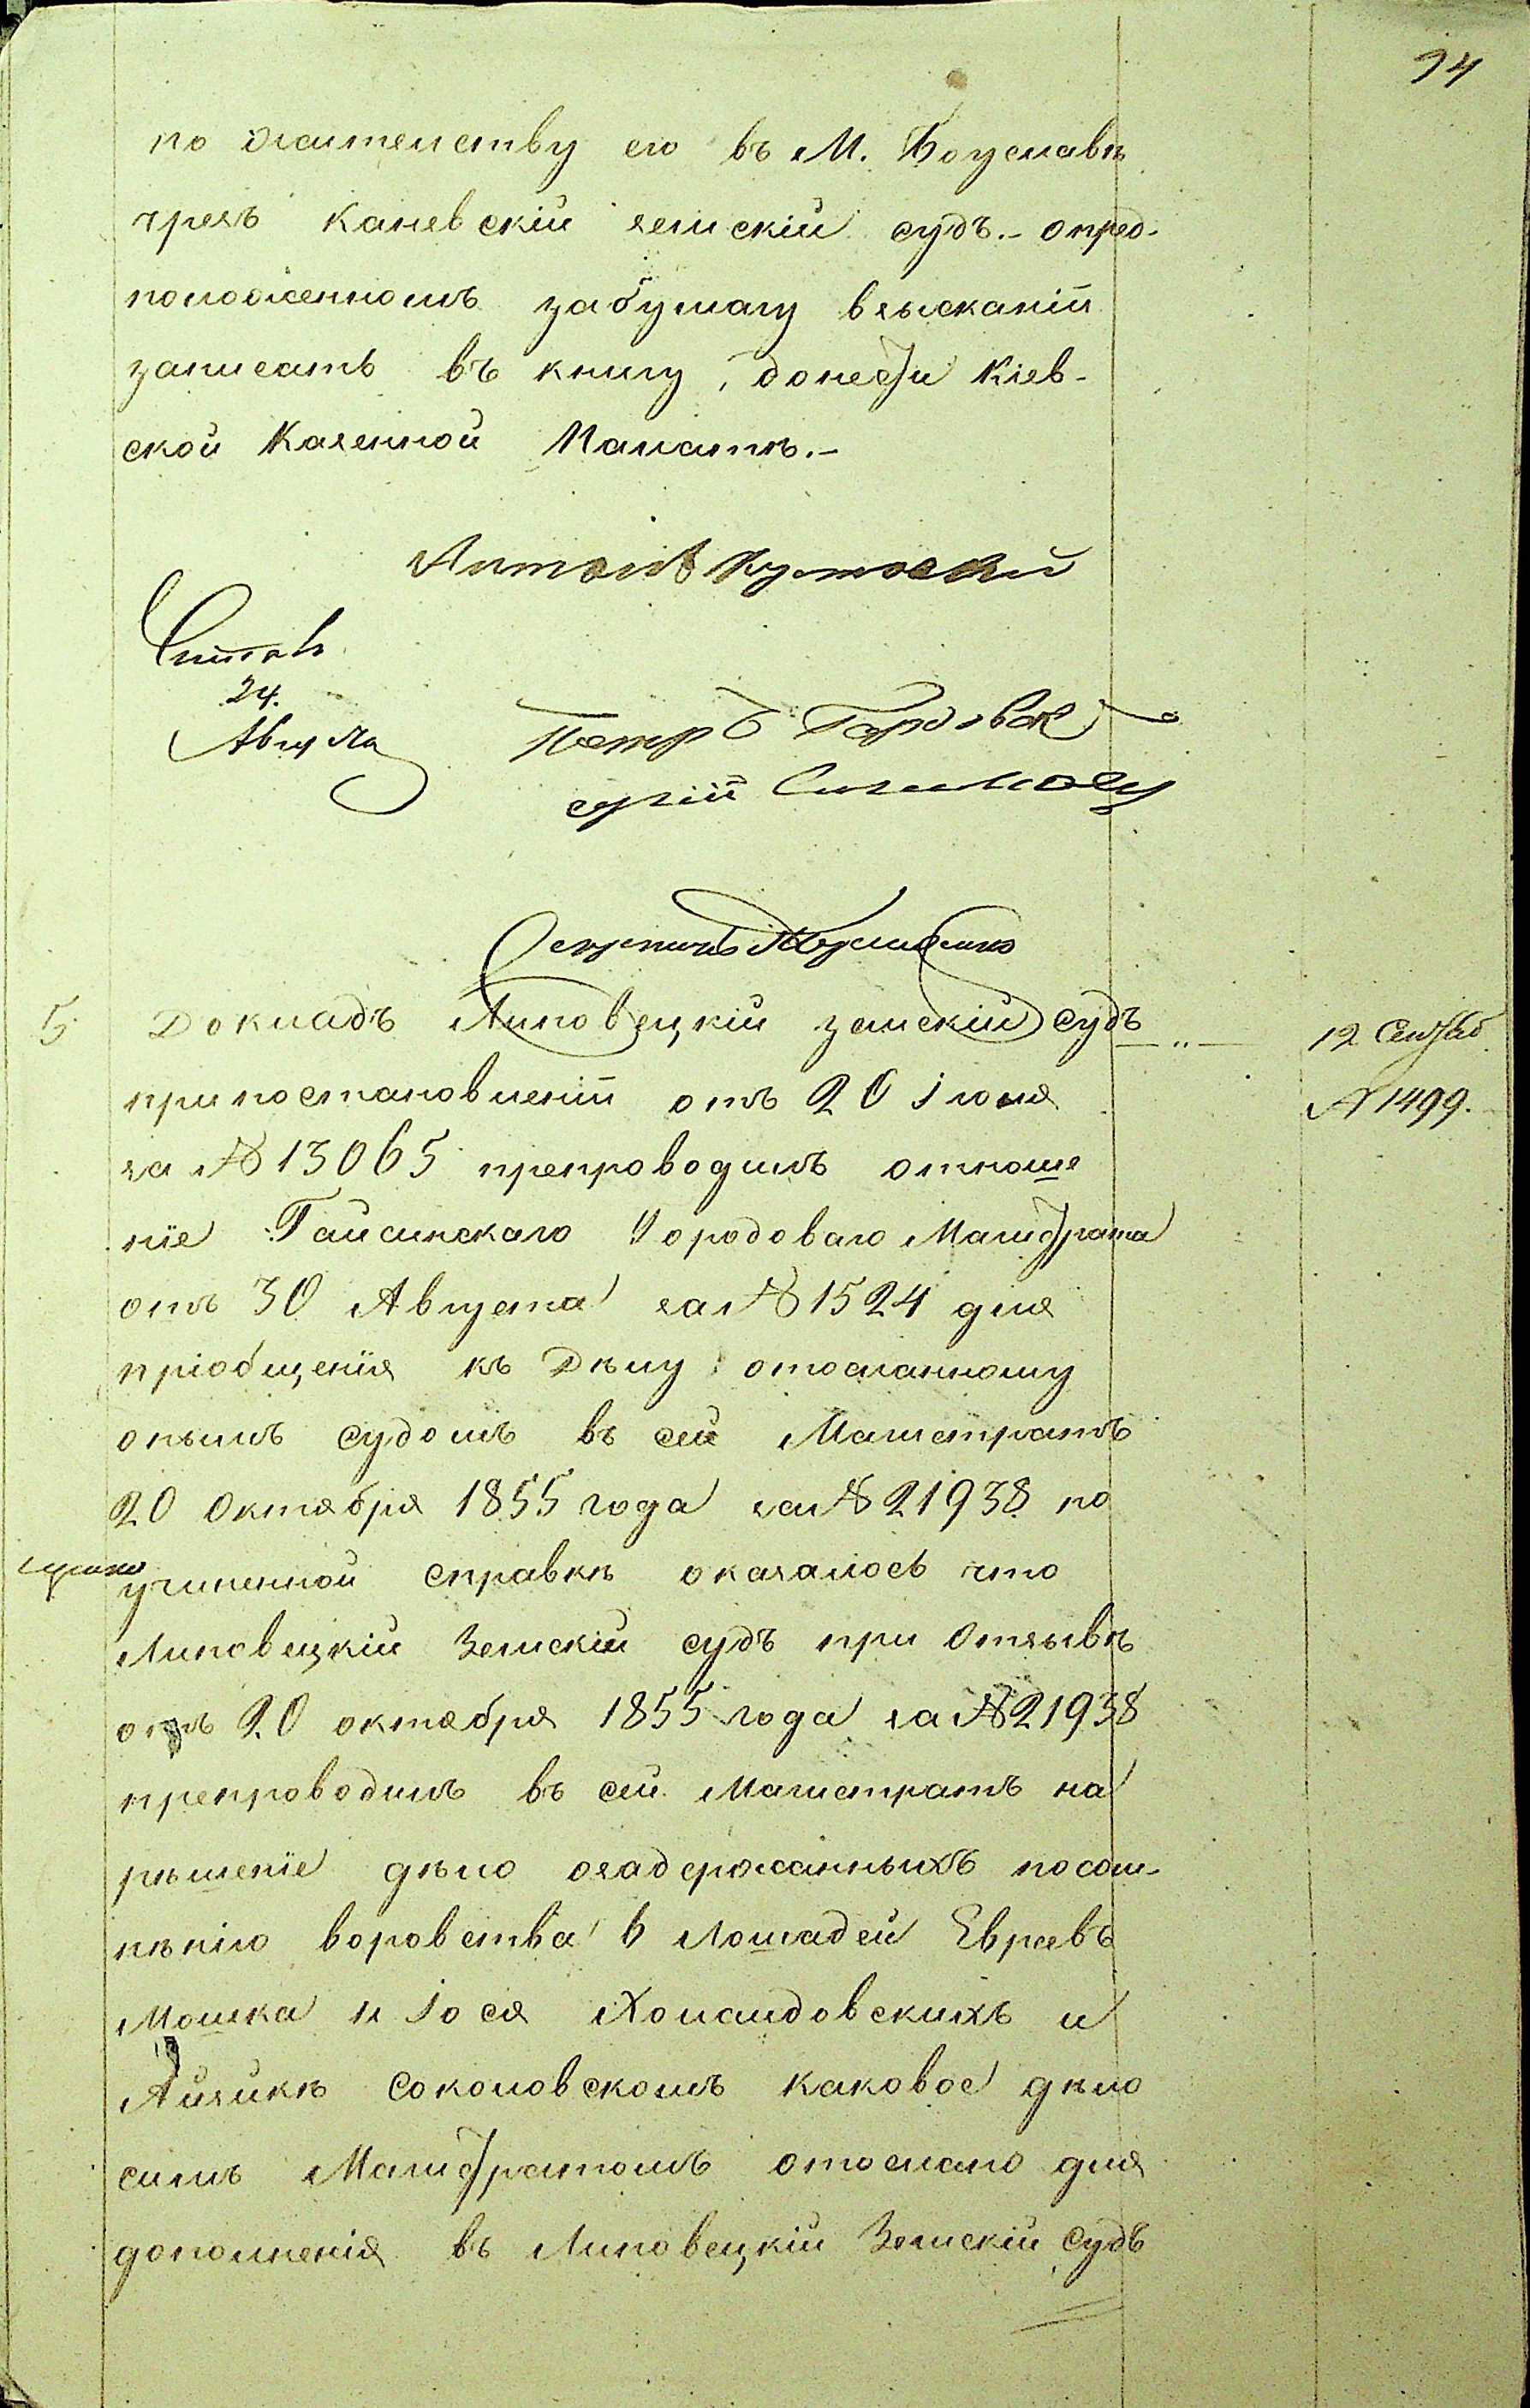 94
по жительству его въ М. Богуславѣ
чрезъ Каневскій земскій судъ.- опред-
положенномъ забумагу взысканіи
записать въ книгу, донести Кіев-
ской Казенной Палатѣ.-
Антонъ
Читалъ
24.
Августа
Петръ
Секретарь
5 Докладъ Липовецкій земскій судъ
12 Сентяб
№ 1499.
припостановленіи отъ 20 Іюля
за № 13065 препроводилъ отноше
ніе Гайсинскаго Городоваго Магистрата
отъ 30 Августа за № 1524 для
пріобщенія къ Дѣлу отосланному
онымъ судомъ въ сей Магистратъ
20 Октября 1855 года за № 21938 по
учиненной справкѣ оказалось что
Липовецкій Земскій судъ при Отзывѣ
отъ 20 октября 1855 года за № 21938
препроводилъ въ сей Магистратъ на
рѣшеніе дѣло озадержанныхъ посом-
нѣнію воровства 6 Лошадей Евреевъ
Мошка и Іося Холандовскихъ и
Айзикѣ Соколовскомъ каковое дѣло
симъ Магистратомъ отослано для
дополненія въ Липовецкій Земскій Судъ